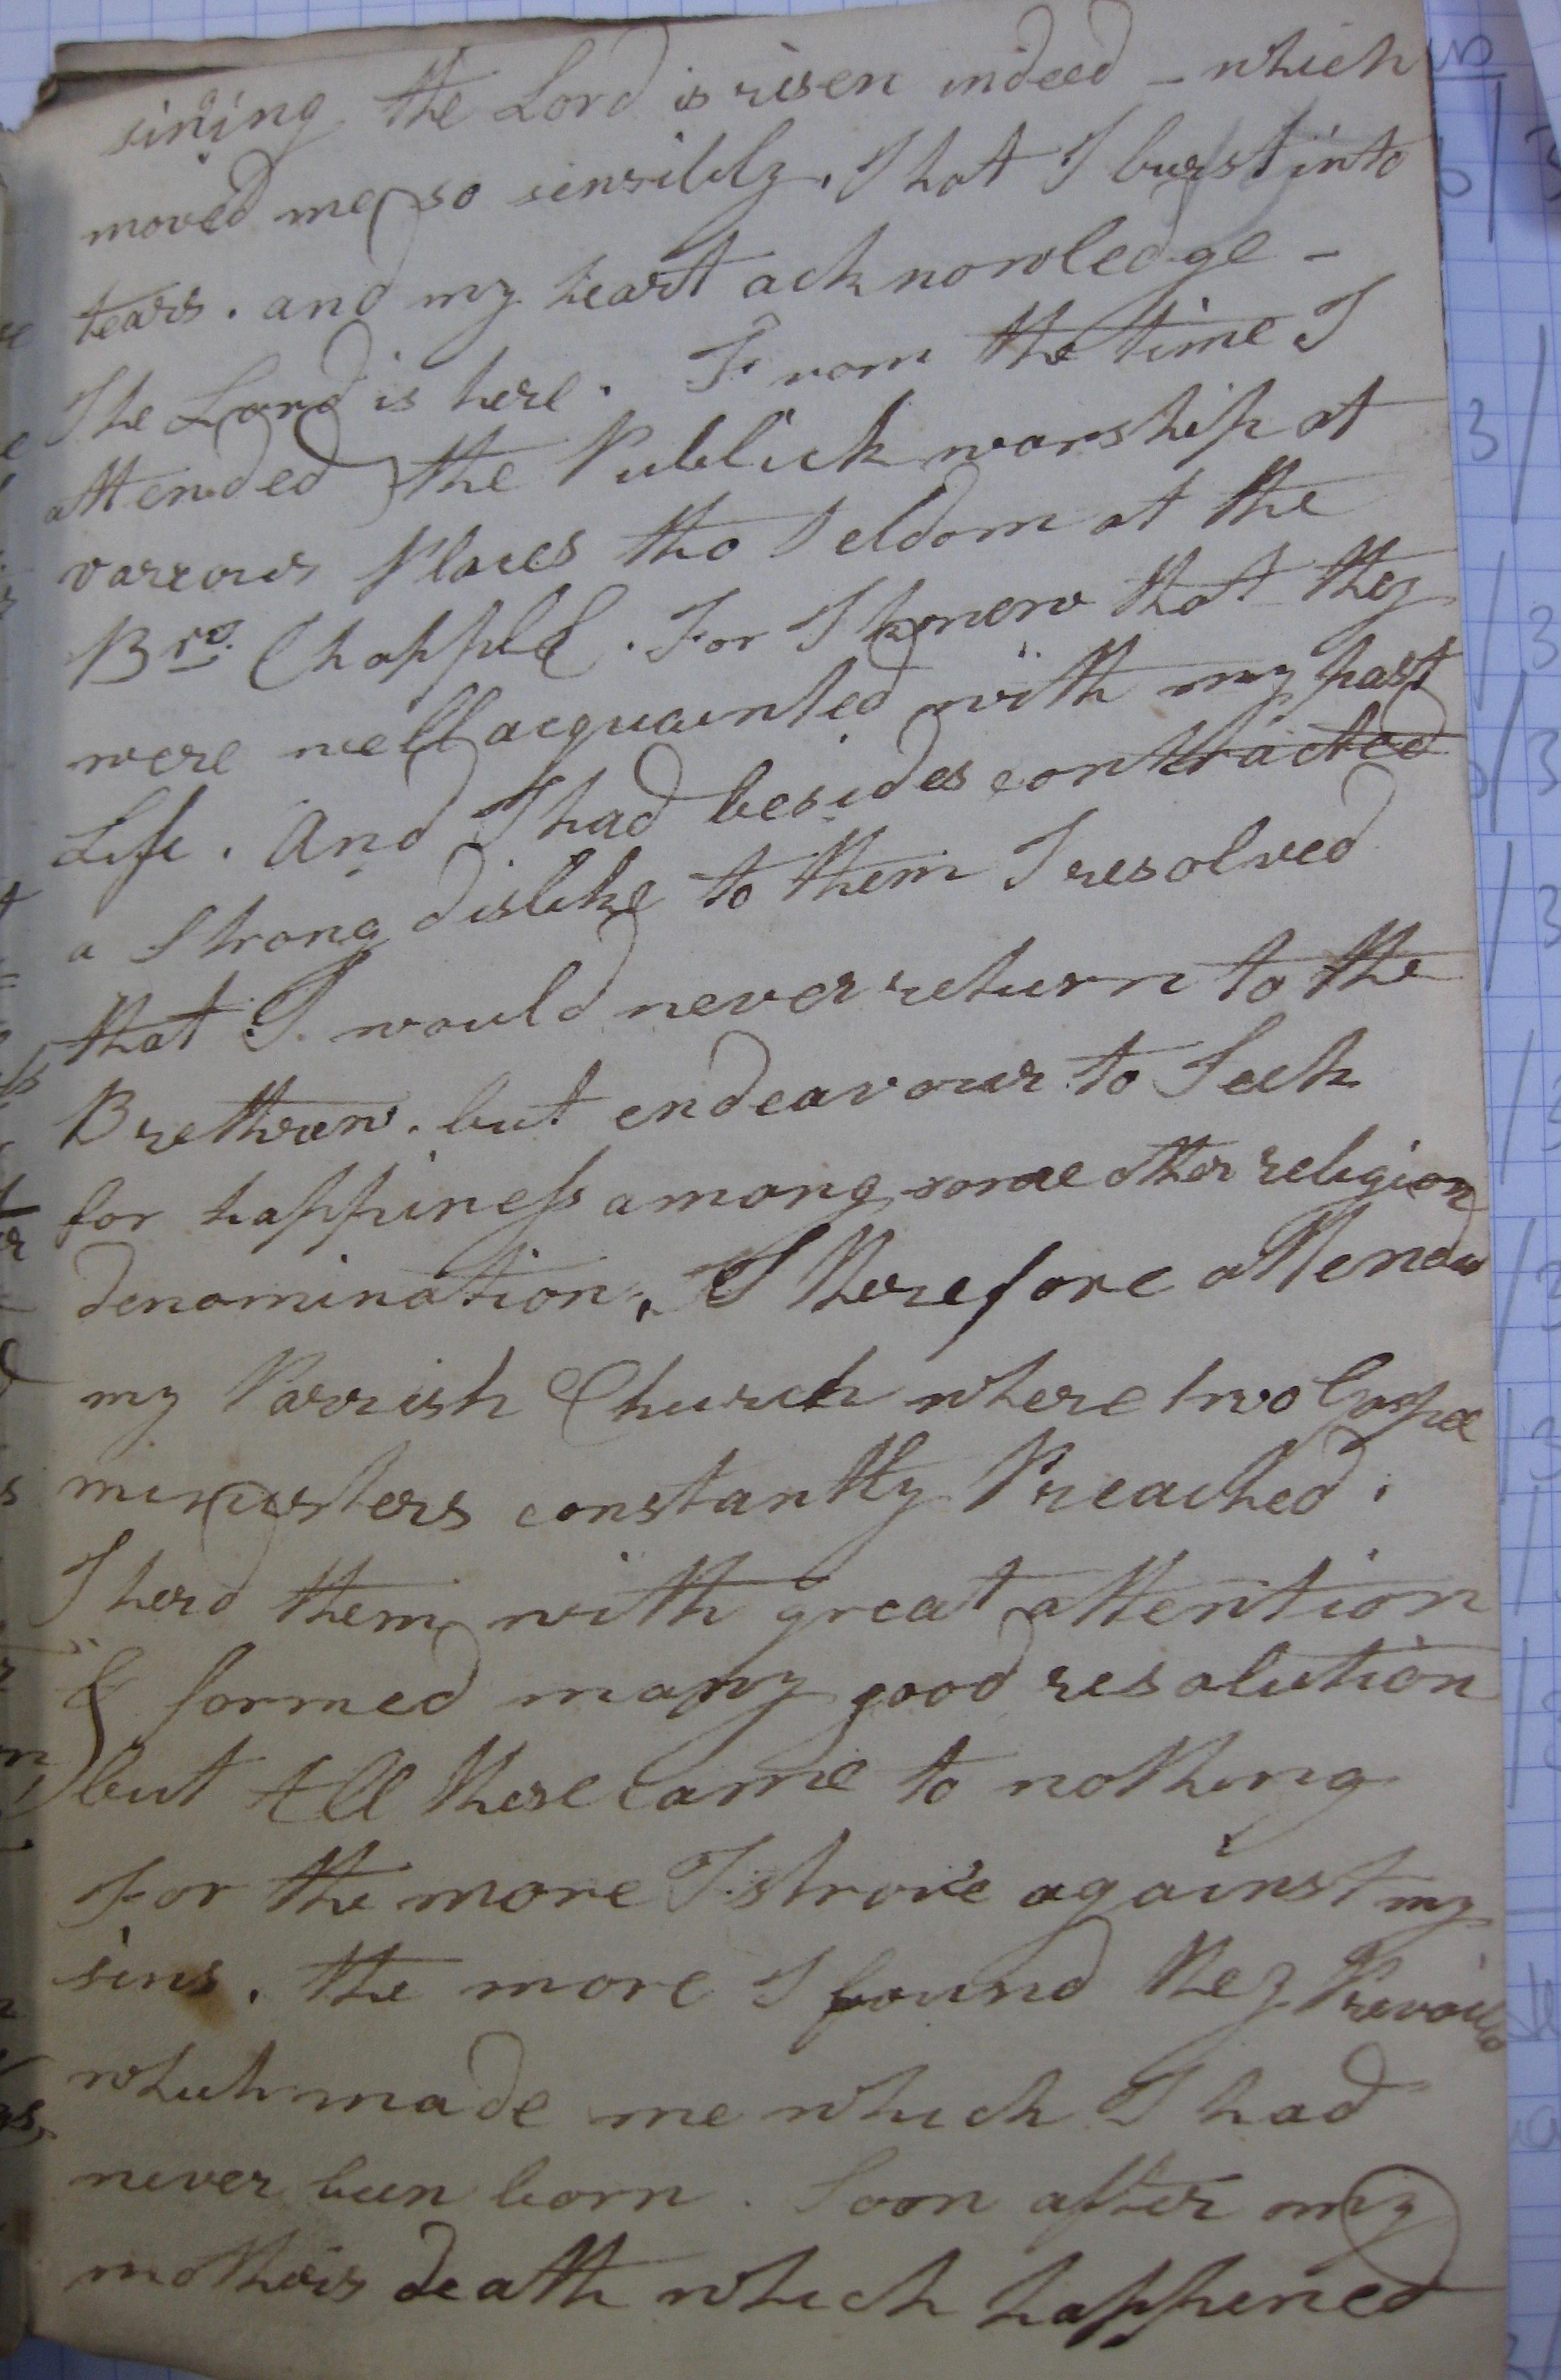 sining the Lord is risen indeed - which
moved me so sensibly. That I burst into
tears. and my heart acknowledge -
The Lord is here. From the time I
attended the Publick worship at
vareous Places tho Seldom at the
Brs. Chapple. For I knew that they
were well acquainted with my past
Life. And I had besides contracted
a Strong dislike to them I resolved
that I would never return to the
Brethren. but endeavour to Seek
for happiness among some other religion
denomination. I therefore attended
my Parrish Church where two Gospel
ministers constantly Preached.
I herd them with great attention
& formed many good resolution
but all these came to nothing
For the more I strove against my
sins. the more I found they Prevailed
which made me which I had
never been born. Soon after my
mothers death which happened